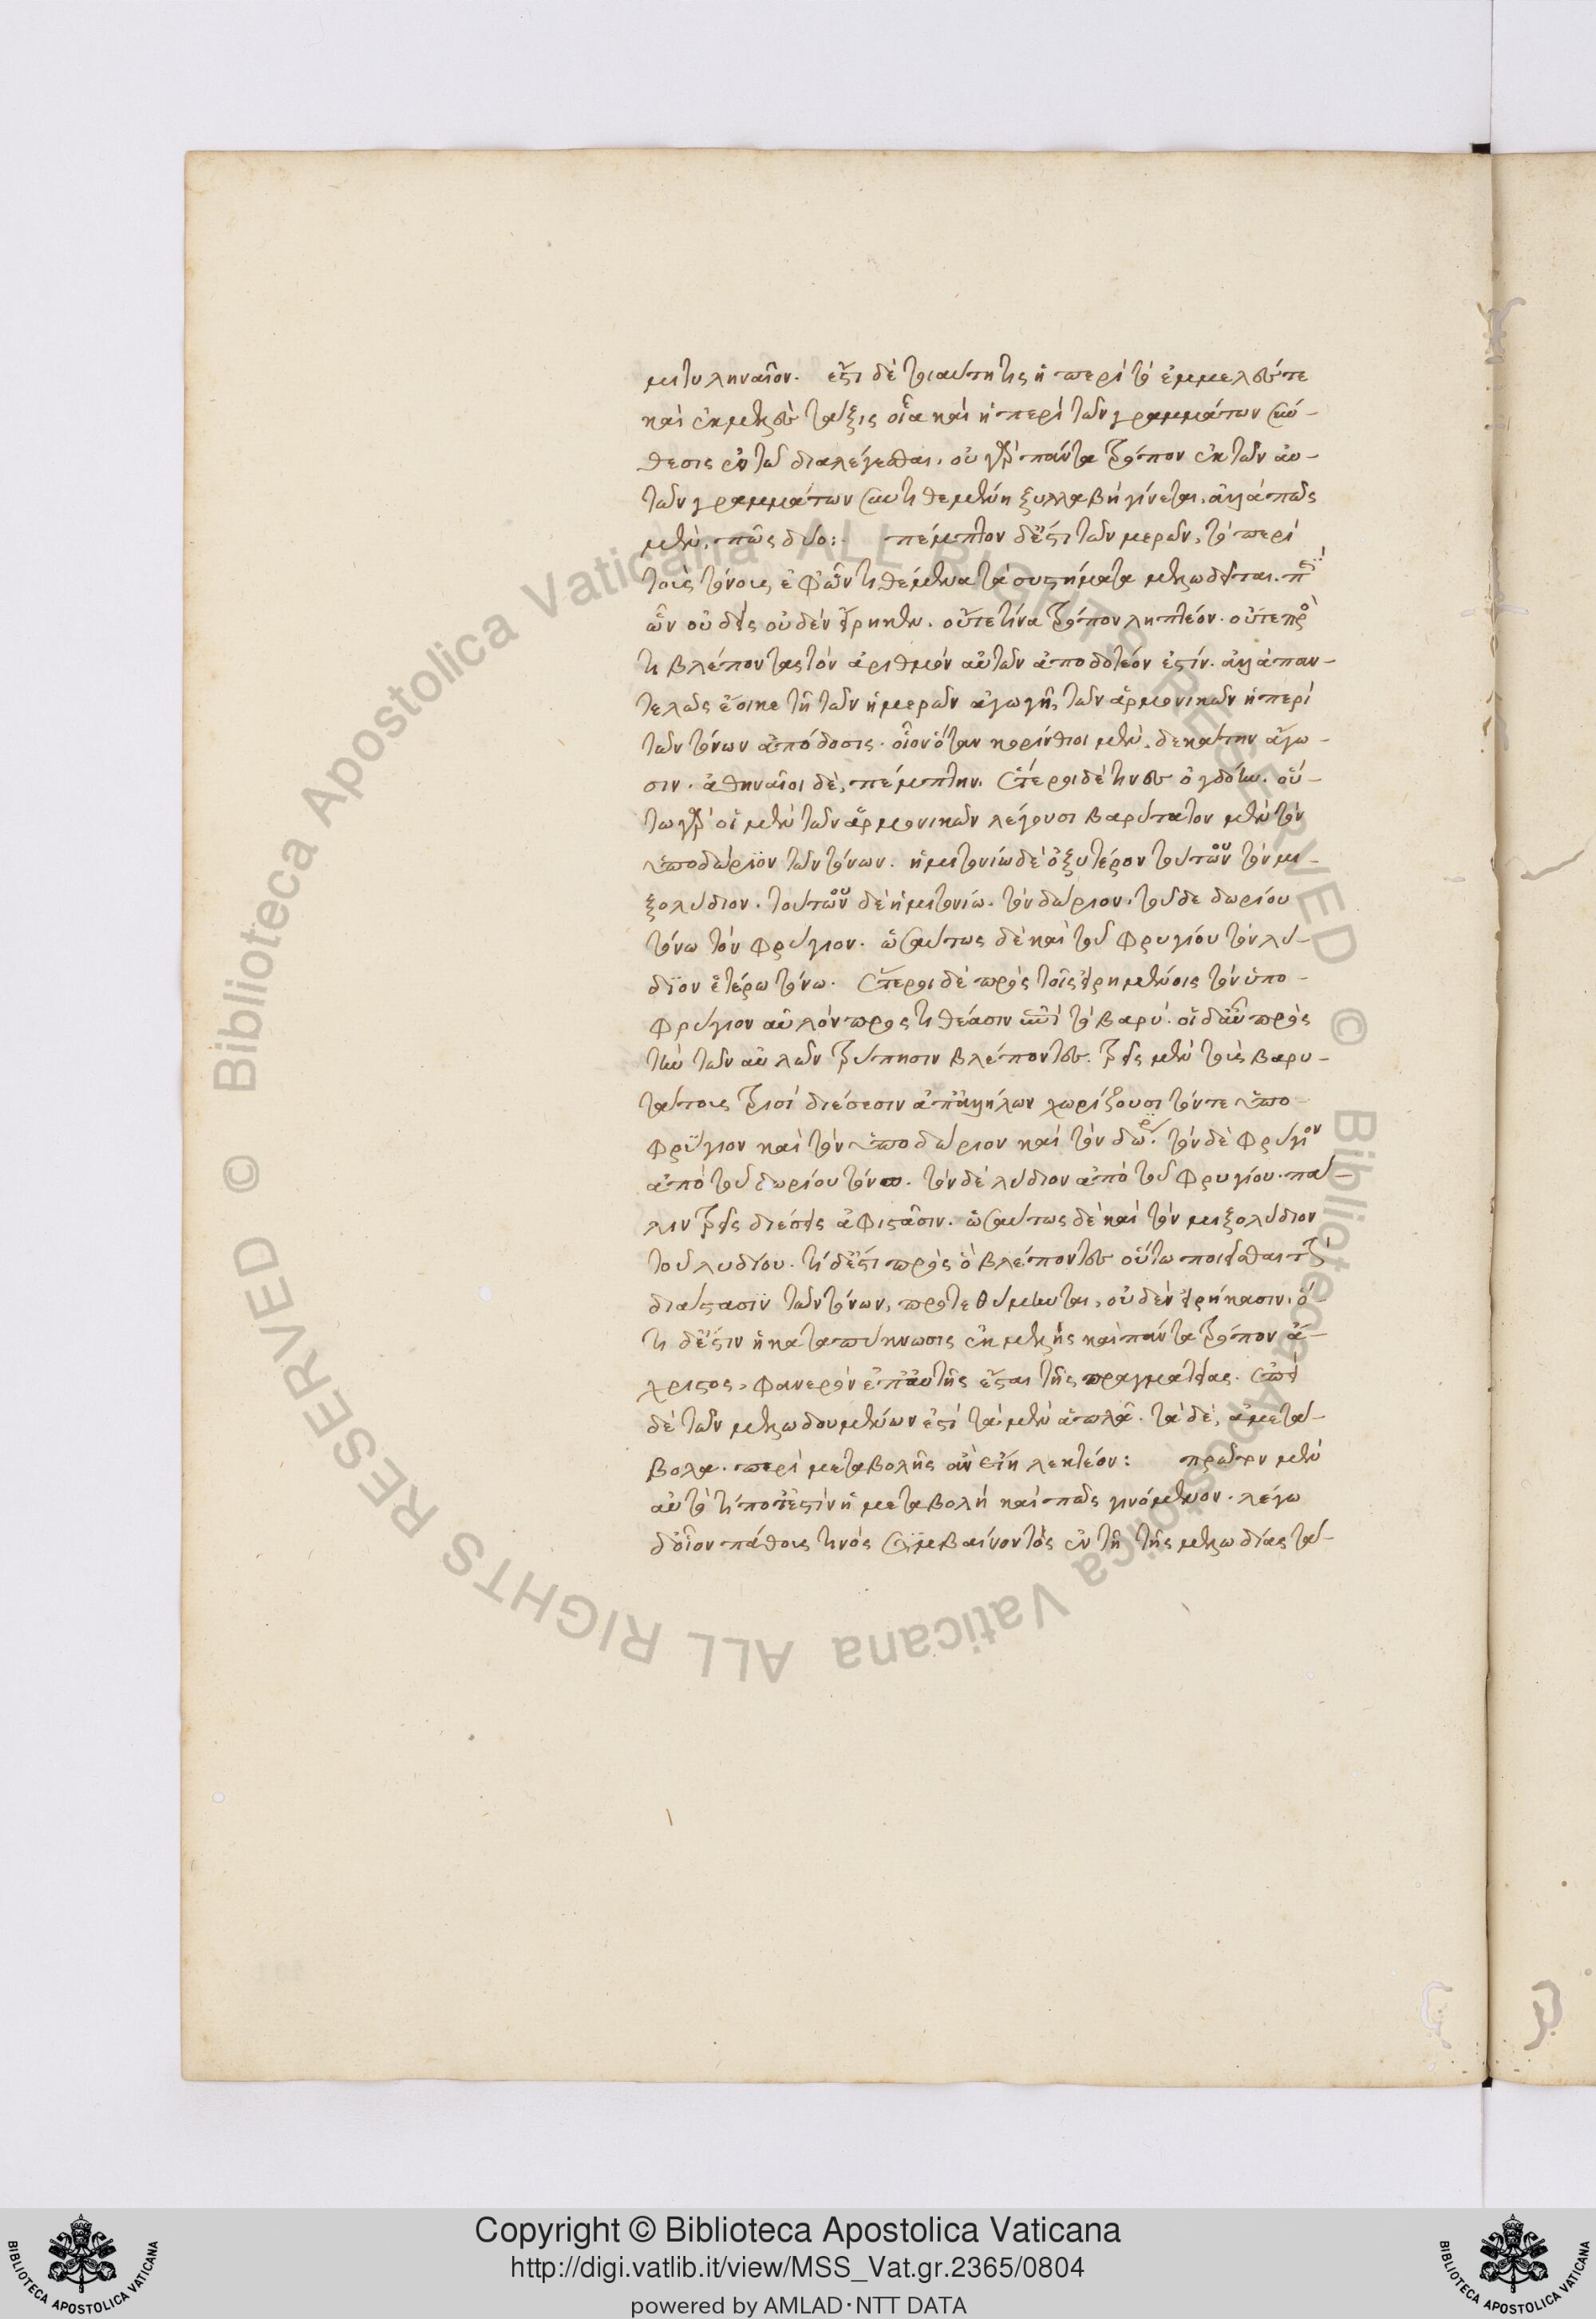 μιτυληναῖον. ἔστι δὲ τοιαύτη τις ἡ περὶ τὸ ἐμμελές τε
καὶ ἐκμελὲς τάξις οἵα καὶ ἡ περὶ τῶν γραμμάτων σύν-
θεσις ἐν τῶ διαλέγεσθαι. οὐ γὰρ πάντα τρόπον ἐκ τῶν αὐ-
τῶν γραμμάτων συντιθεμένη ξυλλαβὴ γίνεται. ἀλλὰ πῶς
μέν, πῶς δ' οὔ:- πέμπτον δ' ἐστὶ τῶν μερῶν, τὸ περὶ
τοὺς τόνους ἐφ' ὧν τιθέμενα τὰ συστήματα μελωδεῖται. περὶ
ὧν οὐδεὶς οὐδὲν εἴρηκεν. οὔτε τίνα τρόπον ληπτέον. οὔτε πρὸς
τι βλέποντας τὸν ἀριθμὸν αὐτῶν ἀποδοτέον ἐστίν. ἀλλὰ παν-
τελῶς ἔοικε τῆ τῶν ἡμερῶν ἀγωγῆ, τῶν ἁρμονικῶν ἡ περὶ
τῶν τόνων ἀπόδοσις. οἷον ὅταν κορίνθιοι μέν, δεκάτην ἄγω-
σιν. ἀθηναῖοι δὲ, πέμπτην. ἕτεροι δέ τινες ὀγδόην. οὕ-
τω γὰρ οἱ μὲν τῶν ἁρμονικῶν λέγουσι βαρύτατον μὲν τὸν
ὑποδώριον τῶν τόνων. ἡμιτονίω δὲ ὀξύτερον τούτου τὸν μι-
ξολύδιον. τούτου δὲ ἡμιτονίω. τὸν δώριον. τοῦ δε δωρίου
τόνω τὸν φρύγιον. ὡσαύτως δὲ καὶ τοῦ φρυγίου τὸν λύ-
διον ἑτέρω τόνω. ἕτεροι δὲ πρὸς τοῖς εἰρημένοις τὸν ὑπο-
φρύγιον αὐλὸν προστιθέασιν ἐπὶ τὸ βαρύ. οἱ δ' αὖ πρὸς
τὴν τῶν αὐλῶν τρύπησιν βλέποντες. τρεῖς μὲν τοὺς βαρυ-
τάτους τρισὶ διέσεσιν ἀπ' ἀλλήλων χωρίζουσι τόν τε ὑπο-
φρύγιον καὶ τὸν ὑποδώριον καὶ τὸν δώριον. τὸν δὲ φρύγιον
ἀπὸ τοῦ δωρίου τόνω. τὸν δὲ λύδιον ἀπὸ τοῦ φρυγίου. πά-
λιν τρεῖς διέσεις ἀφιστᾶσιν. ὡσαύτως δὲ καὶ τὸν μιξολύδιον
τοῦ λυδίου. τί δ' ἐστὶ πρὸς ὃ βλέποντες οὕτω ποιεῖσθαι τὴν
διάστασιν τῶν τόνων, προτεθύμηνται, οὐδὲν εἰρήκασιν. ὅ-
τι δ' ἐστὶν ἡ καταπύκνωσις ἐκμελὴς καὶ πάντα τρόπον ἄ-
χρηστος, φανερὸν ἐπ' αὐτῆς ἔσται τῆς πραγματείας. ἐπεὶ
δὲ τῶν μελωδουμένων ἐστὶ τὰ μὲν ἁπλᾶ. τὰ δὲ, ἀμετά-
βολα. περὶ μεταβολῆς ἂν εἴη λεκτέον: πρῶτον μὲν
αὐτὸ τί ποτ' ἐστὶν ἡ μεταβολὴ καὶ πῶς γινόμενον. λέγω
δ' οἷον πάθους τινὸς συμβαίνοντος ἐν τῆ τῆς μελωδίας τά-
Copyright © Biblioteca Apostolica Vaticana
http://digi.vatlib.it/view/MSS_Vat.gr.2365/0804
powered by AMLAD·NTT DATA
BIBLIOTECA APOSTOLICA VATICANA
BIBLIOTECA APOSTOLICA VATICANA
© Biblioteca Apostolica Vaticana ALL RIGHTS RESERVED
© Biblioteca Apostolica Vaticana ALL RIGHTS RESERVED